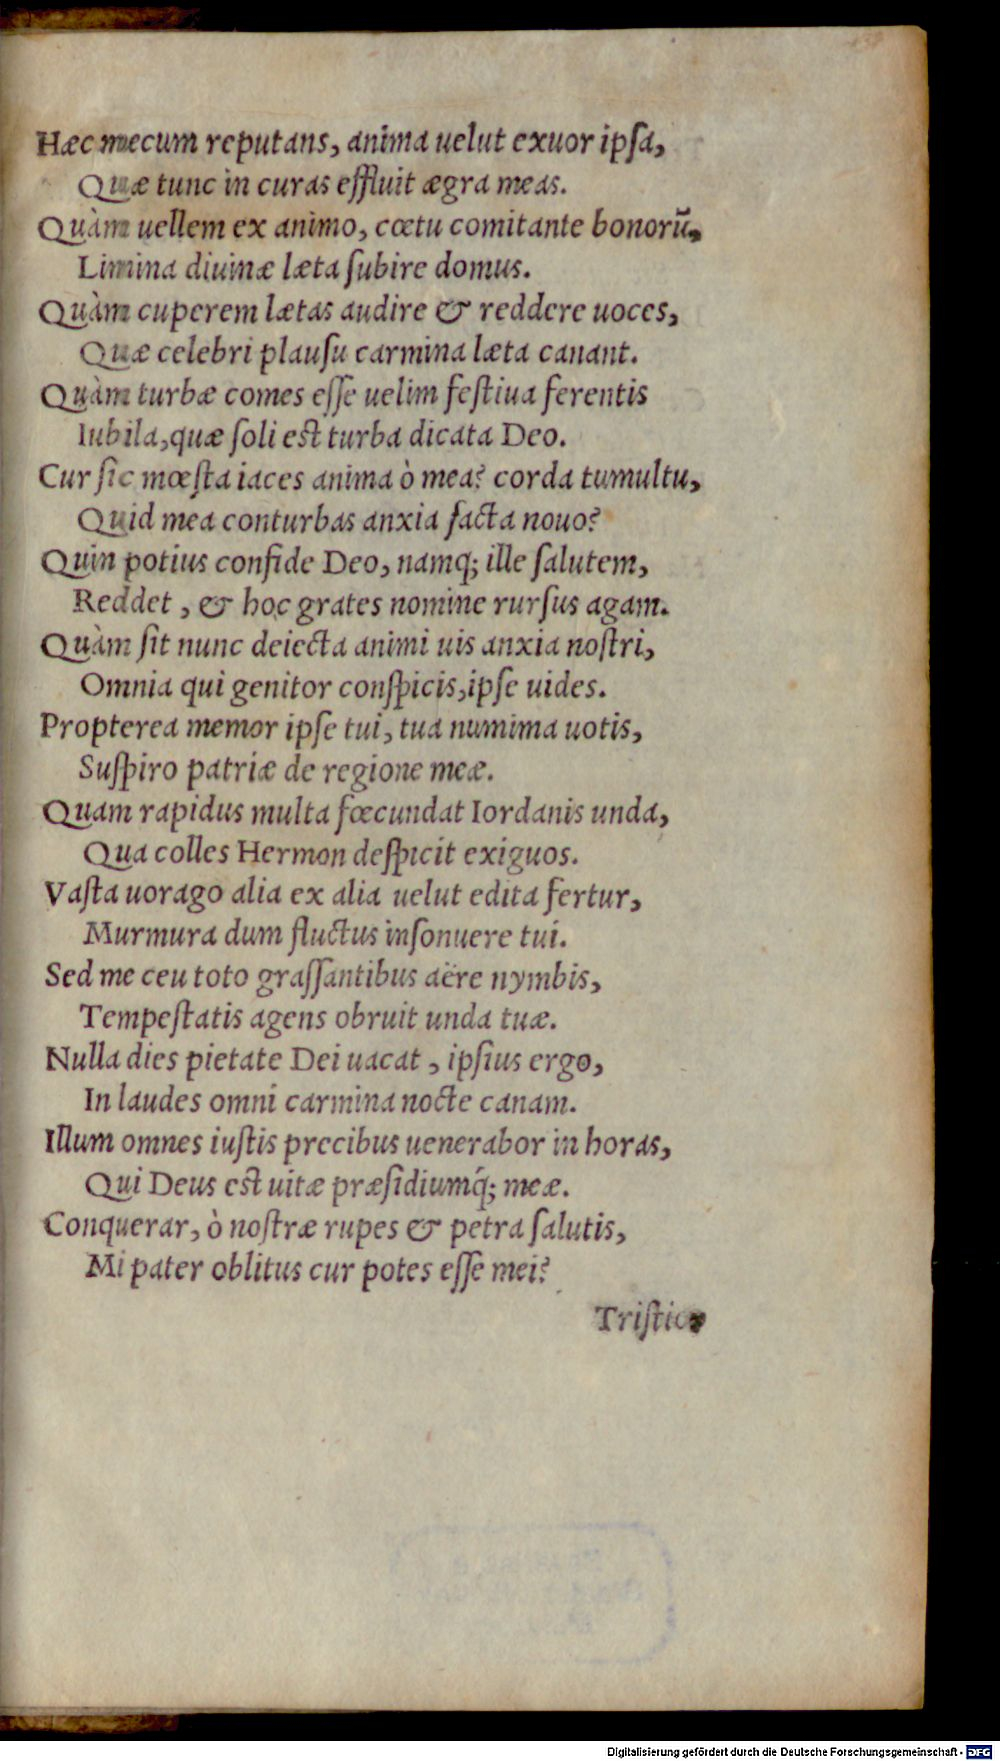 Hæc mecum reputans, anima uelut exuor ipſa,
Quæ tunc in curas effluit ægra meas.
Quàm uellem ex animo, cœtu comitante bonorũ,
Limina diuinæ læta ſubire domus.
Quàm cuperem lætas audire & reddere uoces,
Quæ celebri plauſu carmina læta canant.
Quàm turbæ comes eſſe uelim feſtiua ferentis
Iubila, quæ ſoli est turba dicata Deo.
Cur ſic mœſta iaces anima ò mea? corda tumultu,
Quid mea conturbas anxia facta nouo?
Quin potius confide Deo, namq; ille ſalutem,
Reddet, & hoc grates nomine rurſus agam.
Quàm ſit nunc deiecta animi uis anxia noſtri,
Omnia qui genitor conſpicis, ipſe uides.
Propterea memor ipſe tui, tua numima uotis,
Suſpiro patriæ de regione meæ.
Quam rapidus multa fœcundat Iordanis unda,
Qua colles Hermon deſpicit exiguos.
Vaſta uorago alia ex alia uelut edita fertur,
Murmura dum fluctus inſonuere tui.
Sed me ceu toto graſſantibus aëre nymbis,
Tempeſtatis agens obruit unda tuæ.
Nulla dies pietate Dei uacat, ipſius ergo,
In laudes omni carmina nocte canam.
Illum omnes iuſtis precibus uenerabor in horas,
Qui Deus est uitæ præſidiumq́; meæ.
Conquerar, ò noſtræ rupes & petra ſalutis,
Mi pater oblitus cur potes eſſe mei?
Triſtior
Digitalisierung gefördert durch die Deutsche Forschungsgemeinschaft - DFG